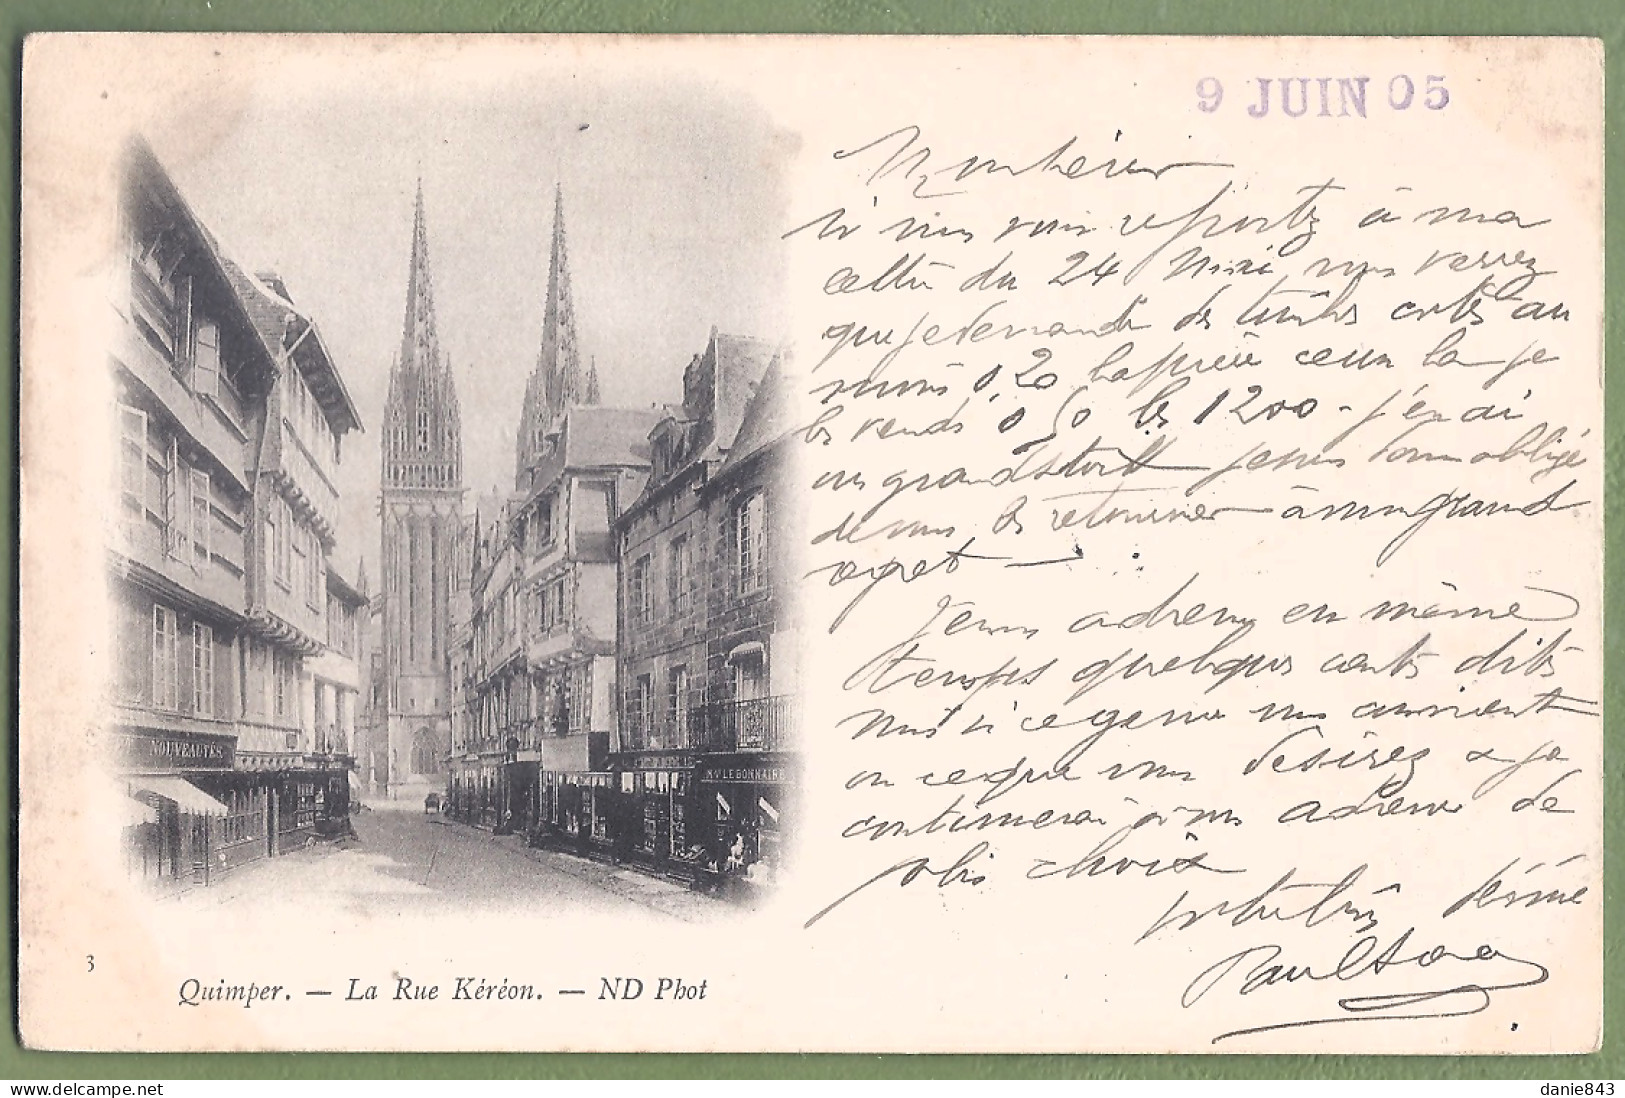 9 JUIN 05
Monsieur
si vous vous reportez à ma
celle du 24 Mai, vous verrez
que je demande des timbres cotés au
moins 0,20 la pièce ceux là je
les vends 0 50 les 1200 - j'en ai
un grand stock je suis donc obligé
de vous les retourner à mon grand
regret —
Je vous adresse en même
temps quelques cartes dites
moi si ce genre vous convient
ou ce que vous désirez & je
continuerai à vous adresser de
jolis choix
Paul
NOUVEAUTÉS
Mon LE BONNAIRE
3
Quimper. — La Rue Kéréon. — ND Phot
delcampe.net
danie843